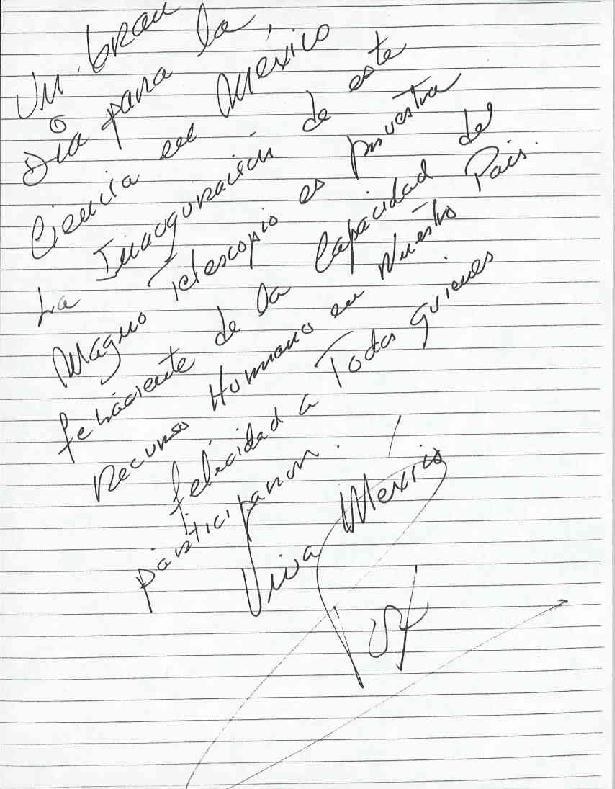 Un gran
Dia para la
Ciencia en Mexico
La Inauguración de este
Magno Telescopio es muestra
fehaciente de la Capacidad del
Recurso Humano en Nuestro Pais.
felicidad a Todos quienes
participaron.
Viva Mexico